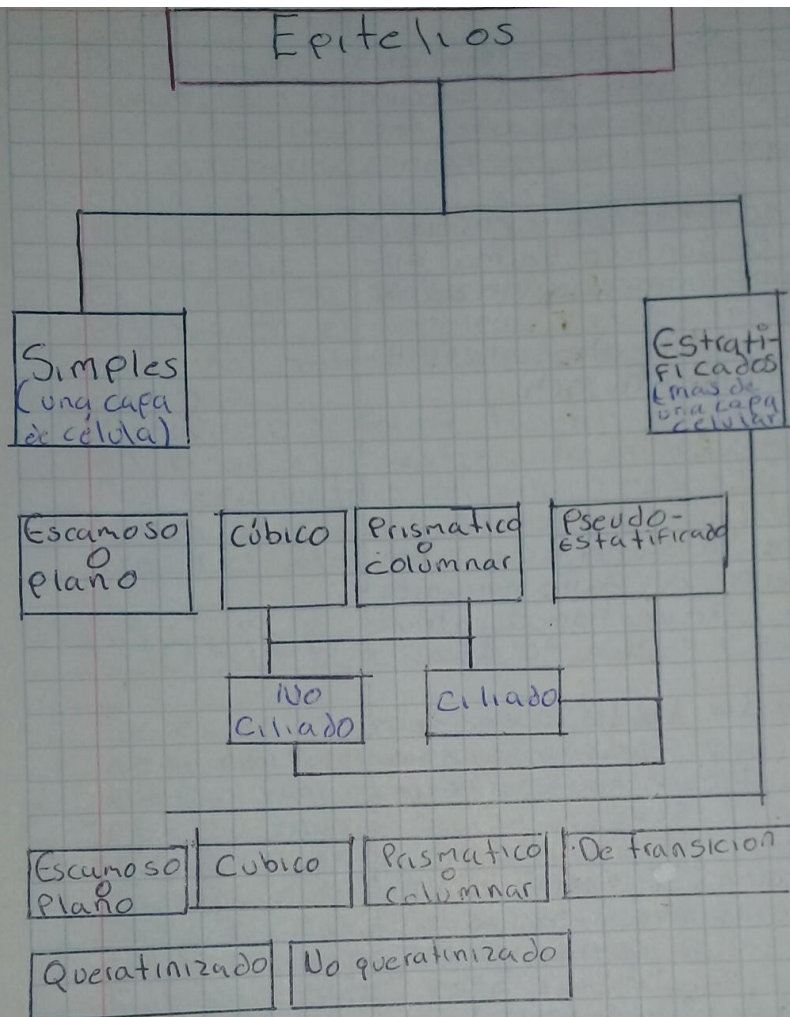 Epitelios
Simples
(una capa
de célula)
Estrati-
ficados
(mas de
una capa
celular
Escamoso
o
plano
Cúbico
Prismatico
o
columnar
Pseudo-
Estatificado
No
Ciliado
Ciliado
Escamoso
o
Plano
Cubico
Prismatico
o
columnar
De transicion
Queratinizado
No queratinizado